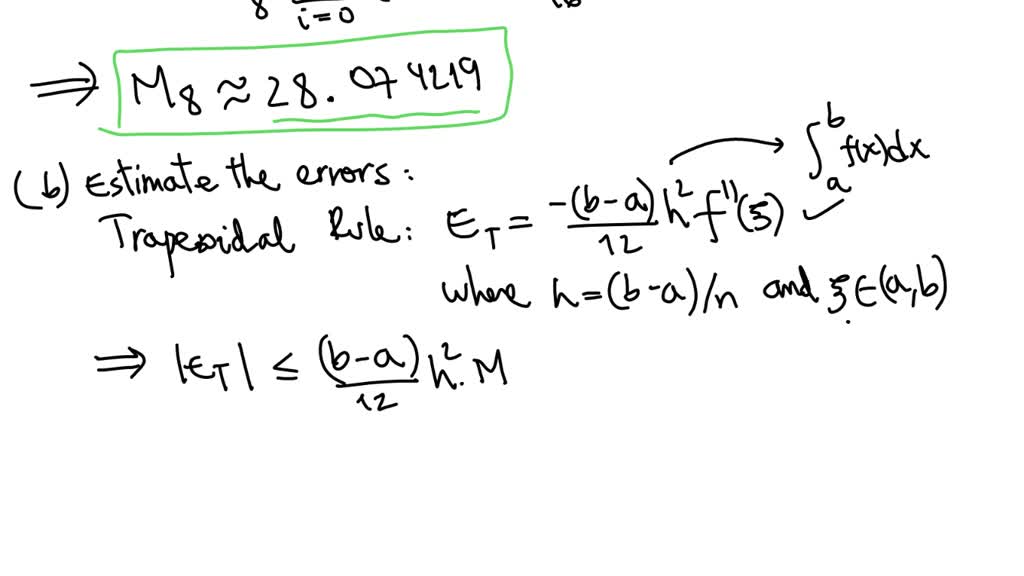 8 i=0
⟹ M₈ ≈ 28.074219
(b) Estimate the errors:
∫ₐᵇ f(x)dx
Trapezoidal Rule: E_T = -(b-a)/12 h² f''(ξ) ✓
where h=(b-a)/n and ξ∈(a,b)
⟹ |E_T| ≤ (b-a)/12 h². M